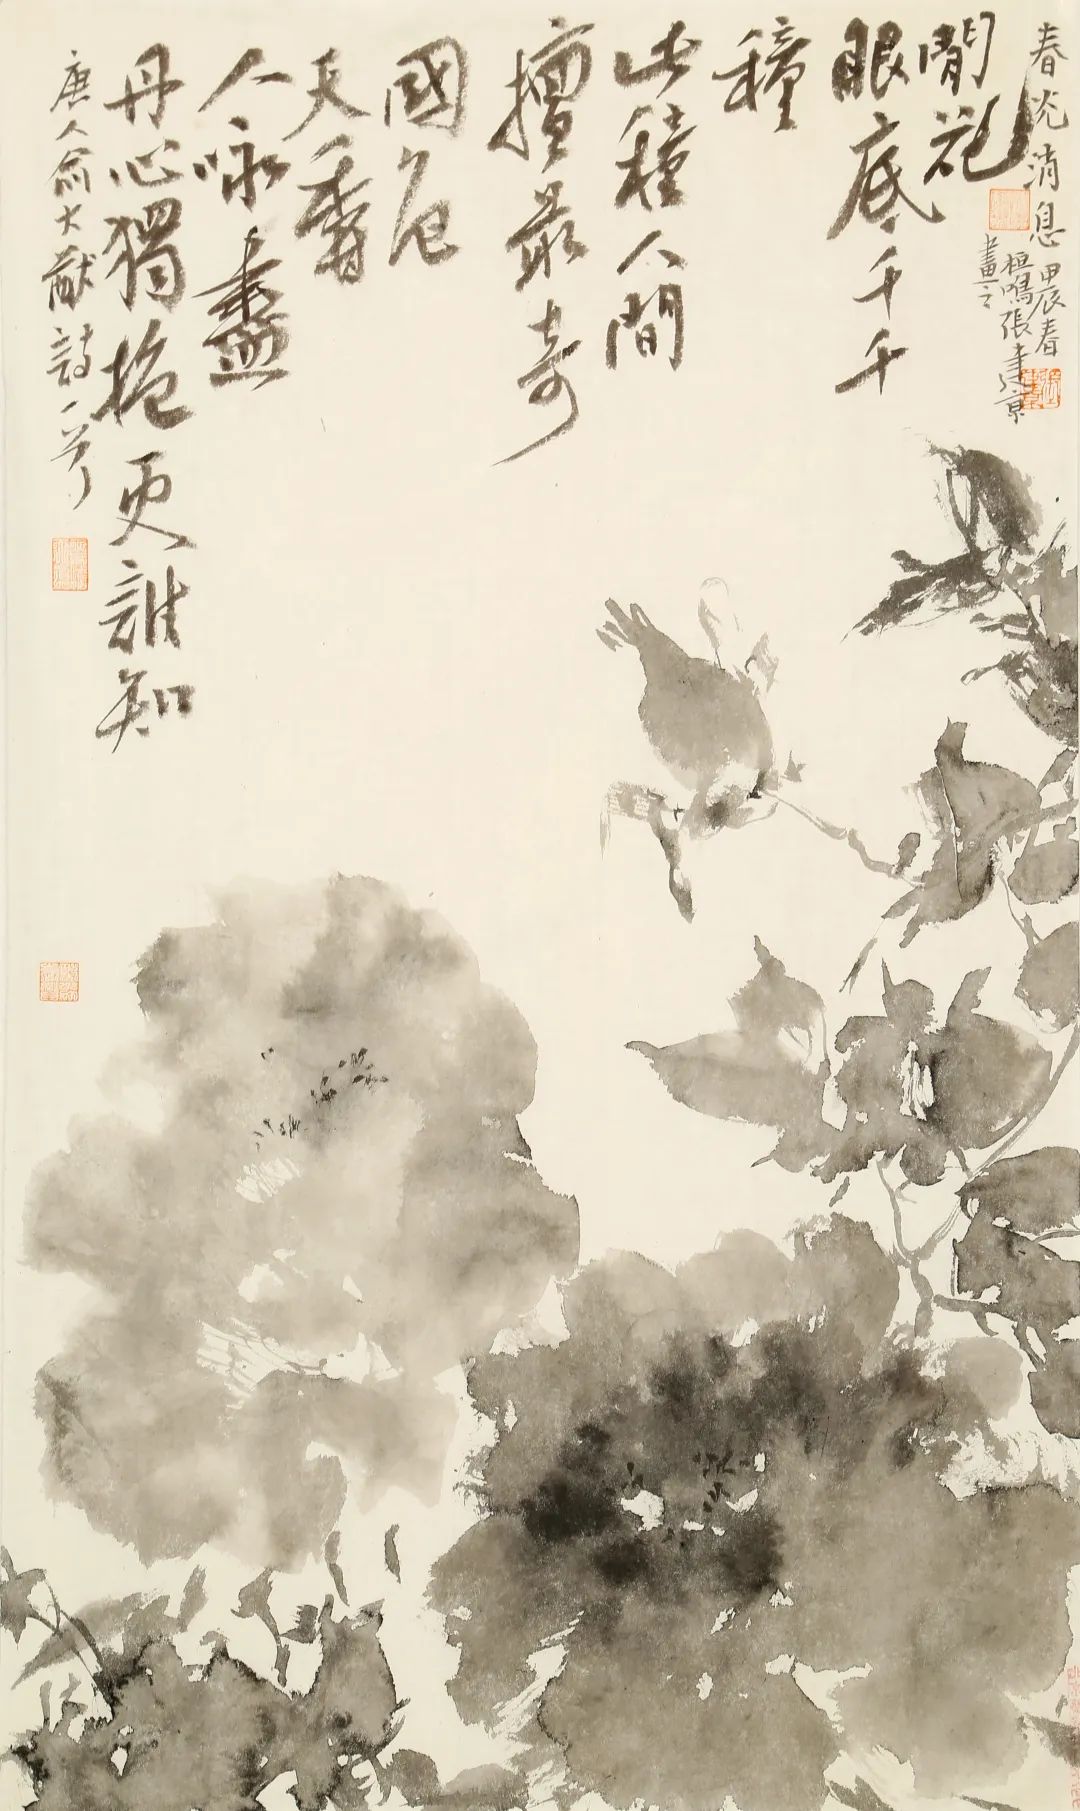 春光消息 甲辰春
桓鳴張建京
畫之
閒花
眼底千千
種
此種人間
擅最奇
國色
天香
人咏盡
丹心獨抱更誰知
唐人俞大猷詩一首